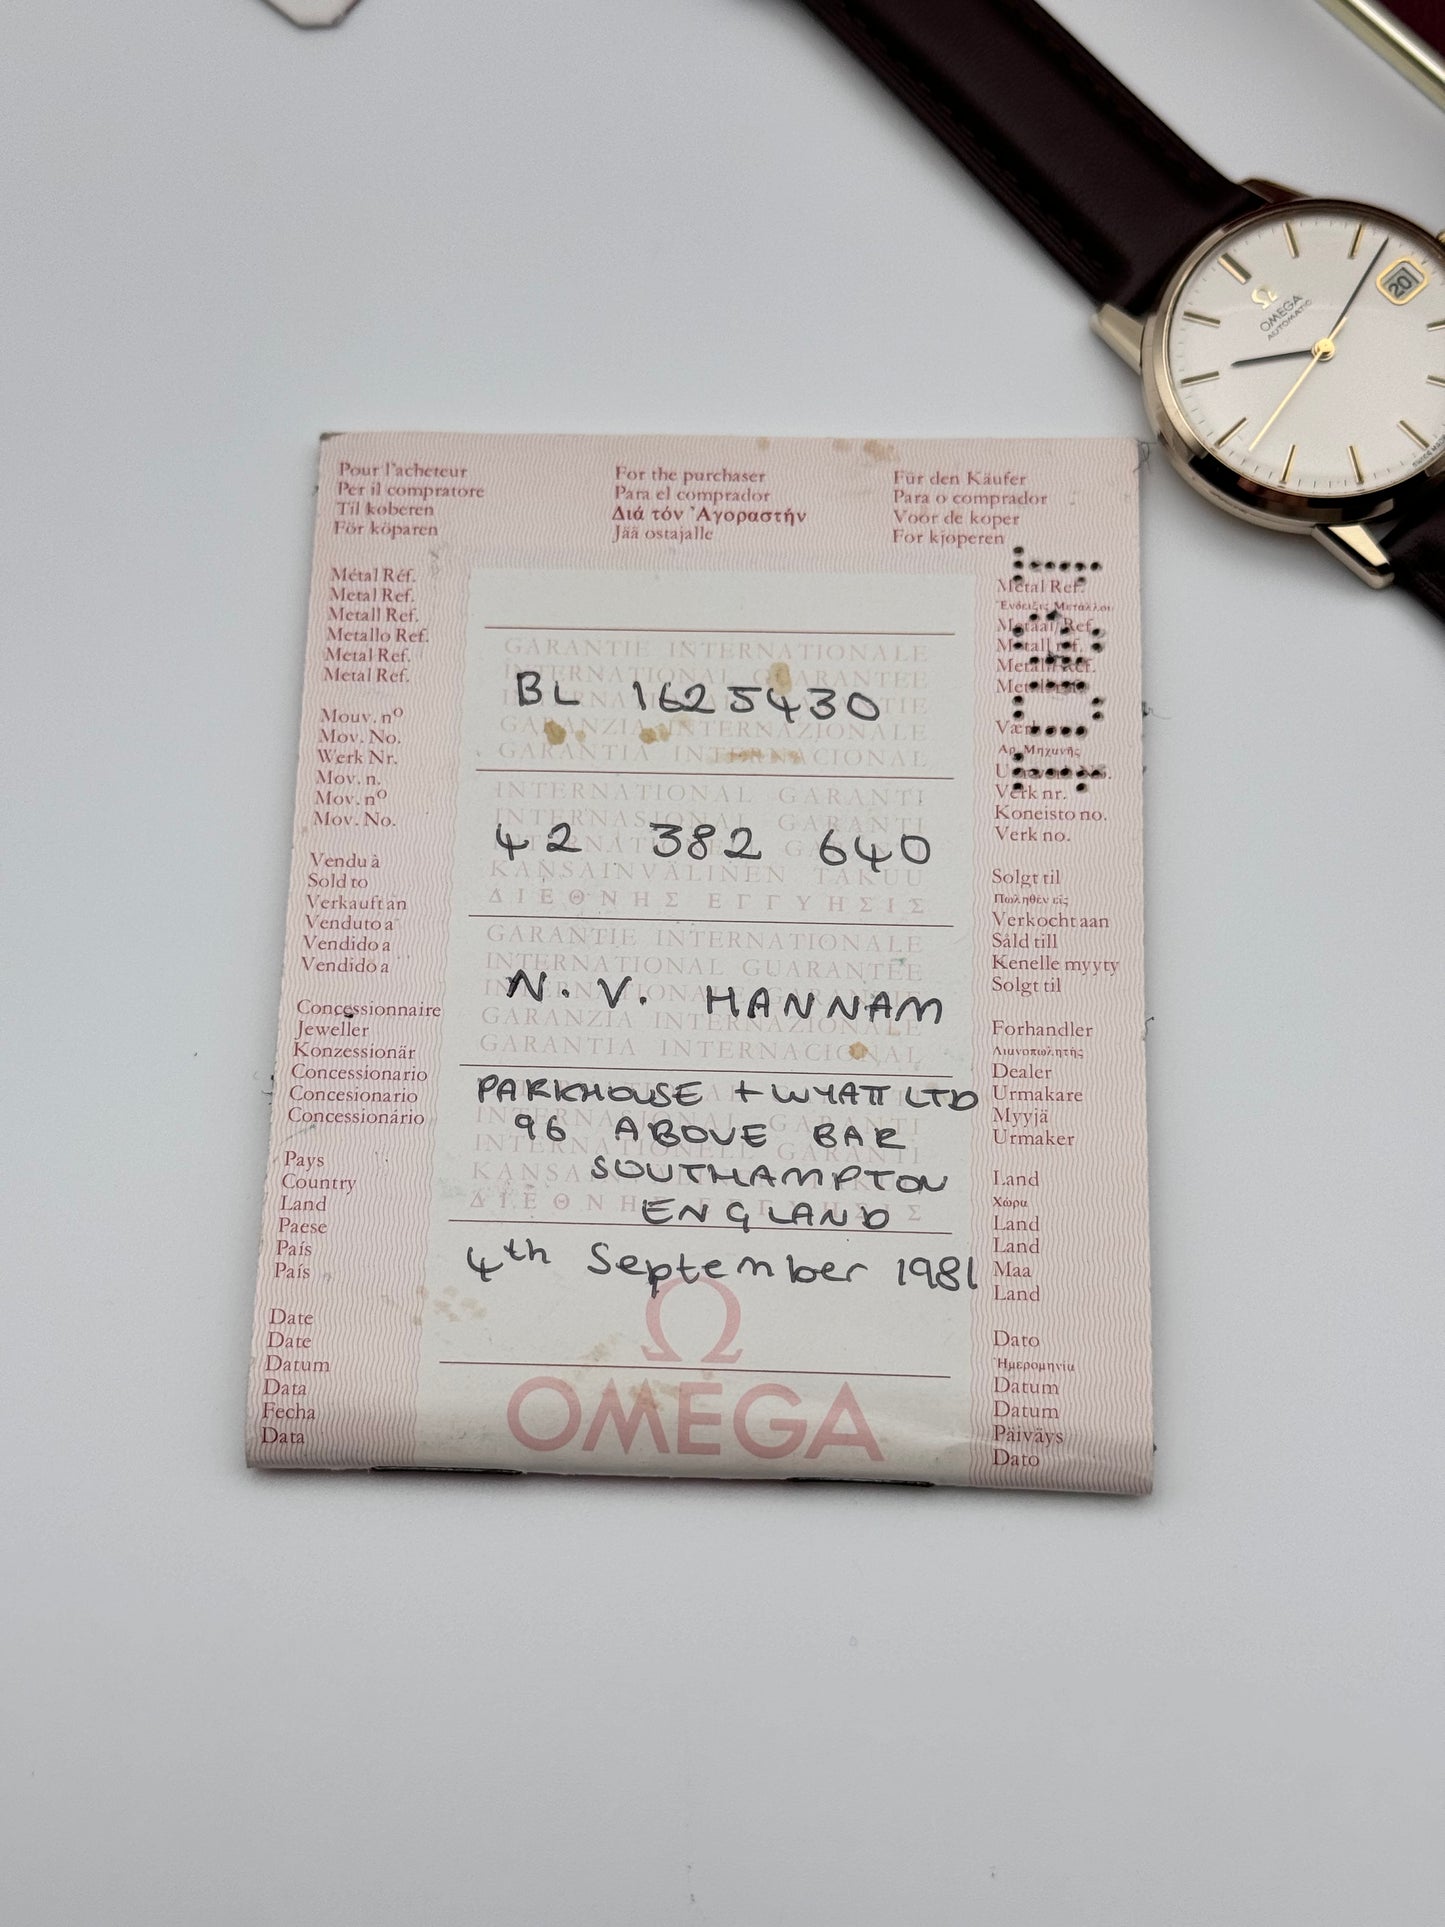 Pour l'acheteur
Per il compratore
Til køberen
För köparen
For the purchaser
Para el comprador
Διά τόν Ἀγοραστήν
Jää ostajalle
Für den Käufer
Para o comprador
Voor de koper
For kjøperen
Métal Réf.
Metal Ref.
Metall Ref.
Metallo Ref.
Metal Ref.
Metal Ref.
Mouv. nº
Mov. No.
Werk Nr.
Mov. n.
Mov. nº
Mov. No.
Vendu à
Sold to
Verkauft an
Venduto a
Vendido a
Vendido a
Concessionnaire
Jeweller
Konzessionär
Concessionario
Concesionario
Concessionário
Pays
Country
Land
Paese
País
País
Date
Date
Datum
Data
Fecha
Data
GARANTIE INTERNATIONALE
INTERNATIONAL GUARANTEE
BL 1625430
GARANZIA INTERNAZIONALE
GARANTIA INTERNACIONAL
INTERNATIONAL GARANTI
INTERNASJONAL GARANTI
42 382 640
KANSAINVÄLINEN TAKUU
ΔΙΕΘΝΗΣ ΕΓΓΥΗΣΙΣ
GARANTIE INTERNATIONALE
INTERNATIONAL GUARANTEE
N. V. HANNAM
GARANZIA INTERNAZIONALE
GARANTIA INTERNACIONAL
PARKHOUSE + WYATT LTD
96 ABOVE BAR
SOUTHAMPTON
ENGLAND
4th September 1981
Ω
OMEGA
Metal Ref.
Ἔνδειξις Μετάλλου
Metaal Ref.
Metall ref.
Αρ. Μηχανῆς
Verk nr.
Koneisto no.
Verk no.
Solgt til
Πωληθέν εἰς
Verkocht aan
Såld till
Kenelle myyty
Solgt til
Forhandler
Λιανοπωλητής
Dealer
Urmakare
Myyjä
Urmaker
Land
Χώρα
Land
Land
Maa
Land
Dato
Ἡμερομηνία
Datum
Datum
Päiväys
Dato
Ω
OMEGA
AUTOMATIC
20